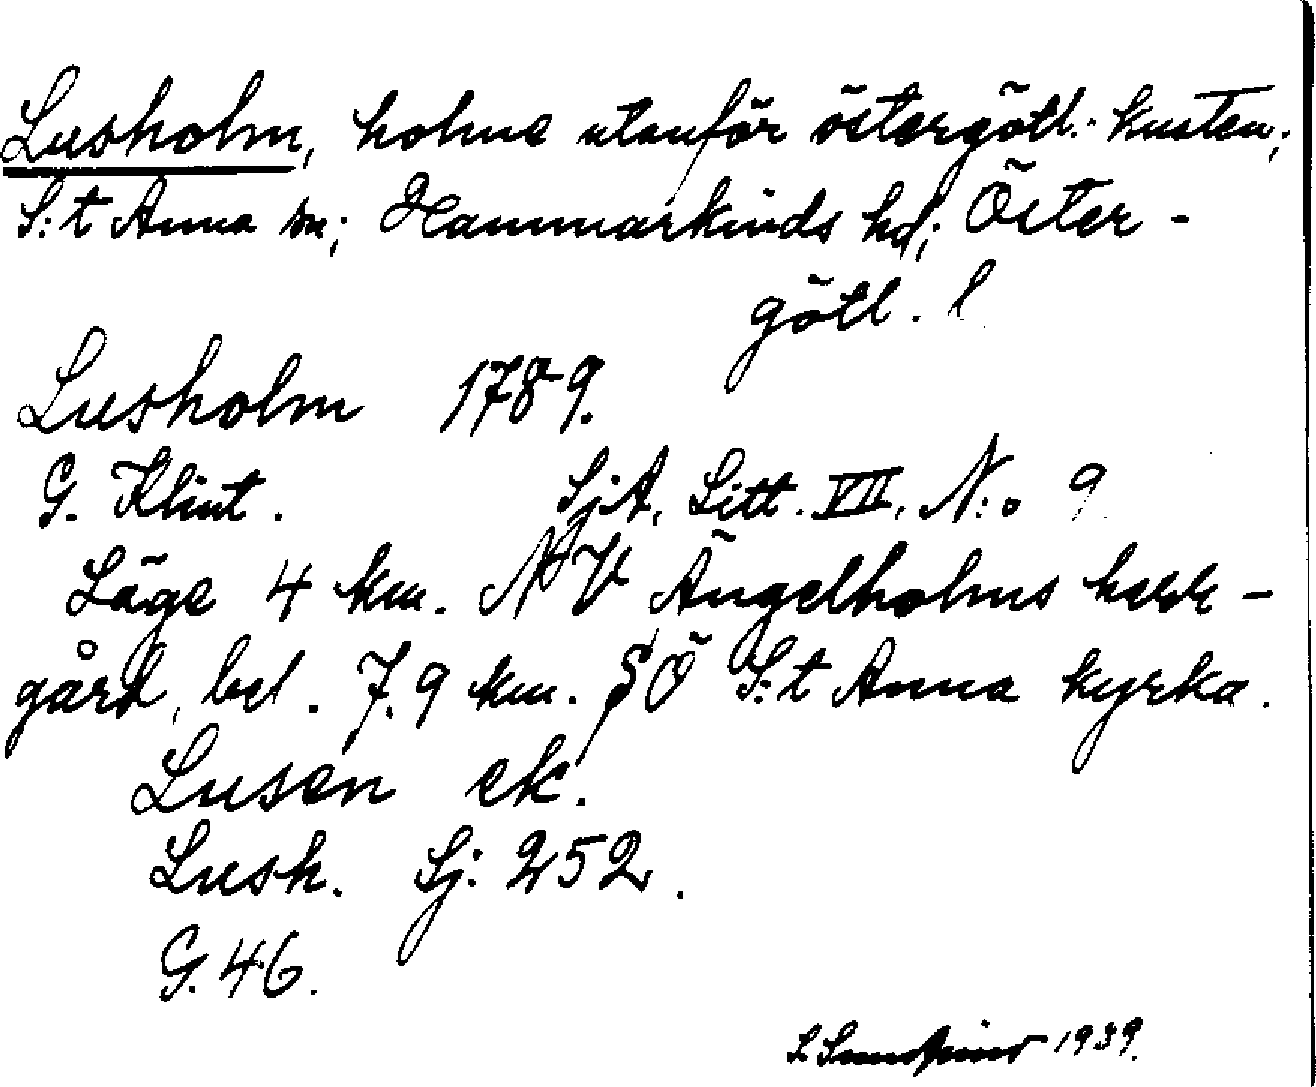 Lusholm, holme utanför östergötl. kusten;
S:t Anna sn; Hammarkinds hd; Öster-
götl. l
Lusholm 1789.
G. Klint. SjA, Litt. VII, N:o 9
Läge 4 km. NV Ängelholms herr-
gård, bel. 7.9 km. SÖ S:t Anna kyrka.
Lusen ek.
Lush. Sj: 252.
G. 46.
1939.